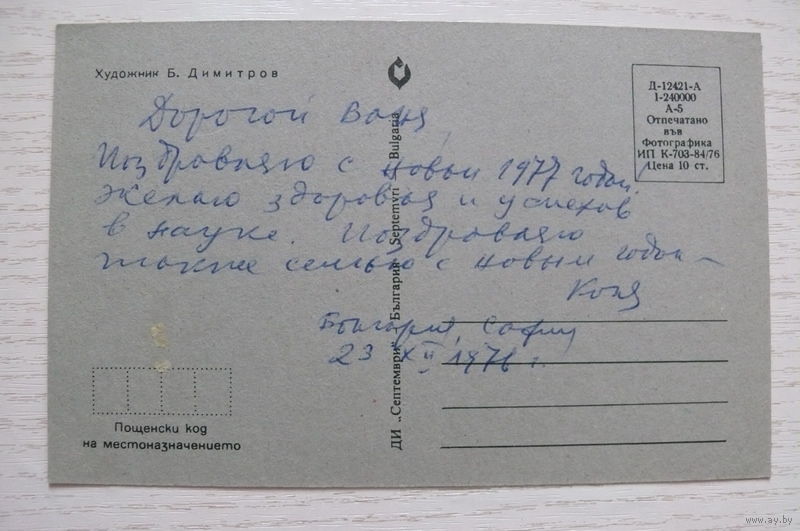 Художник Б. Димитров
Д-12421-А
1-240000
А-5
Отпечатано
във
Фотографика
ИП К-703-84/76
Цена 10 ст.
Дорогой Ваня,
Поздравляю с новым 1977 годом.
Желаю здоровья и успехов
в науке. Поздравляю
также семью с новым годом –
Коля
Болгария, София
23 XII 1976 г.
ДИ „Септември" - България Septemvri - Bulgaria
Пощенски код
на местоназначението
www.ay.by